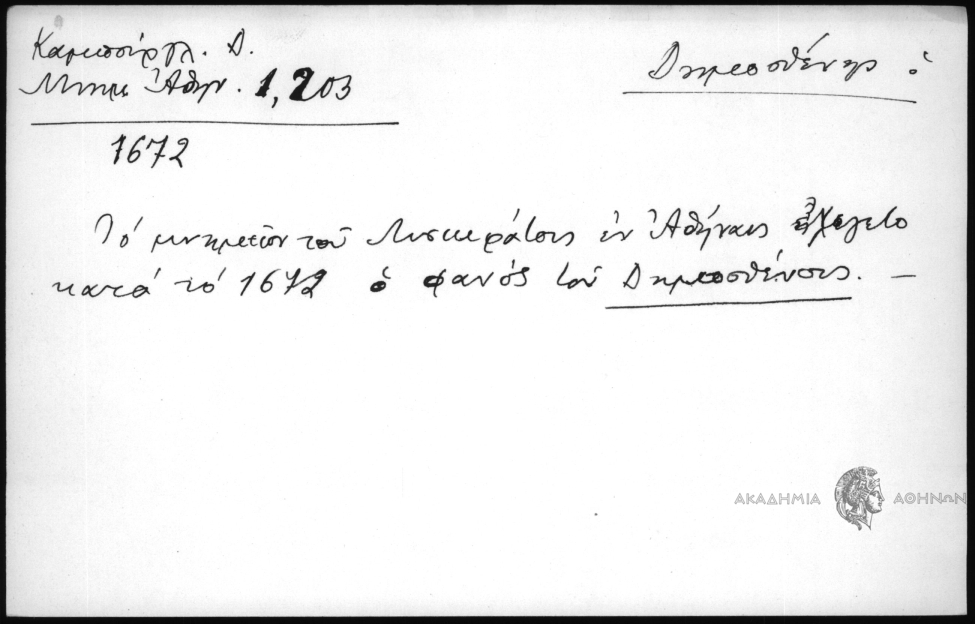 Καμπούρογλ. Δ.
Μνημ. Ἀθην. 1, 203
Δημοσθένης ὁ
1672
Τό μνημεῖον τοῦ Λυσικράτους ἐν Ἀθήναις ἐλέγετο
κατά τό 1672 ὁ φανός τοῦ Δημοσθένους. –
ΑΚΑΔΗΜΙΑ ΑΘΗΝΩΝ